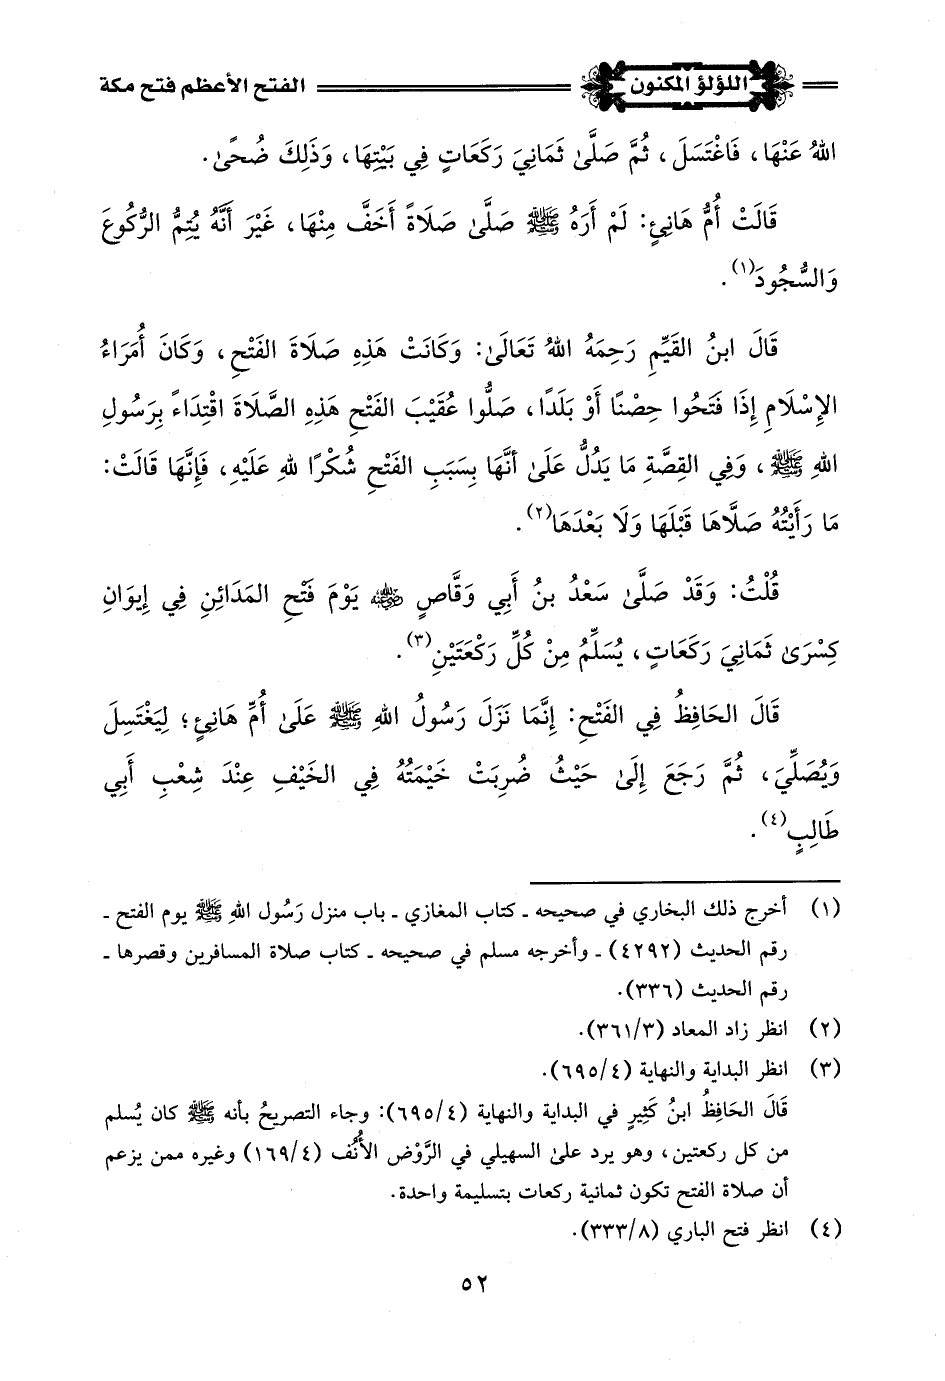 اللؤلؤ المكنون
الفتح الأعظم فتح مكة
اللهُ عَنْهَا، فَاغْتَسَلَ، ثُمَّ صَلَّىٰ ثَمَانِيَ رَكَعَاتٍ فِي بَيْتِهَا، وَذَلِكَ ضُحًىٰ.
قَالَتْ أُمُّ هَانِئٍ: لَمْ أَرَهُ ﷺ صَلَّىٰ صَلَاةً أَخَفَّ مِنْهَا، غَيْرَ أَنَّهُ يُتِمُّ الرُّكُوعَ
وَالسُّجُودَ(١).
قَالَ ابنُ القَيِّمِ رَحِمَهُ اللهُ تَعَالَىٰ: وَكَانَتْ هَذِهِ صَلَاةَ الفَتْحِ، وَكَانَ أُمَرَاءُ
الإِسْلَامِ إِذَا فَتَحُوا حِصْنًا أَوْ بَلَدًا، صَلُّوا عُقَيْبَ الفَتْحِ هَذِهِ الصَّلَاةَ اقْتِدَاءً بِرَسُولِ
اللهِ ﷺ، وَفِي القِصَّةِ مَا يَدُلُّ عَلَىٰ أَنَّهَا بِسَبَبِ الفَتْحِ شُكْرًا للهِ عَلَيْهِ، فَإِنَّهَا قَالَتْ:
مَا رَأَيْتُهُ صَلَّاهَا قَبْلَهَا وَلَا بَعْدَهَا(٢).
قُلْتُ: وَقَدْ صَلَّىٰ سَعْدُ بنُ أَبِي وَقَّاصٍ رضي الله عنه يَوْمَ فَتْحِ المَدَائِنِ فِي إِيوَانِ
كِسْرَىٰ ثَمَانِيَ رَكَعَاتٍ، يُسَلِّمُ مِنْ كُلِّ رَكْعَتَيْنِ(٣).
قَالَ الحَافِظُ فِي الفَتْحِ: إِنَّمَا نَزَلَ رَسُولُ اللهِ ﷺ عَلَىٰ أُمِّ هَانِئٍ؛ لِيَغْتَسِلَ
وَيُصَلِّيَ، ثُمَّ رَجَعَ إِلَىٰ حَيْثُ ضُرِبَتْ خَيْمَتُهُ فِي الخَيْفِ عِنْدَ شِعْبِ أَبِي
طَالِبٍ(٤).
(١) أخرج ذلك البخاري في صحيحه - كتاب المغازي - باب منزل رَسُول اللهِ ﷺ يوم الفتح -
رقم الحديث (٤٢٩٢) - وأخرجه مسلم في صحيحه - كتاب صلاة المسافرين وقصرها -
رقم الحديث (٣٣٦).
(٢) انظر زاد المعاد (٣٦١/٣).
(٣) انظر البداية والنهاية (٦٩٥/٤).
قَالَ الحَافِظُ ابنُ كَثِيرٍ في البداية والنهاية (٦٩٥/٤): وجاء التصريحُ بأنه ﷺ كان يُسلم
من كل ركعتين، وهو يرد علىٰ السهيلي في الرَّوْض الأُنُف (١٦٩/٤) وغيره ممن يزعم
أن صلاة الفتح تكون ثمانية ركعات بتسليمة واحدة.
(٤) انظر فتح الباري (٣٣٣/٨).
٥٢